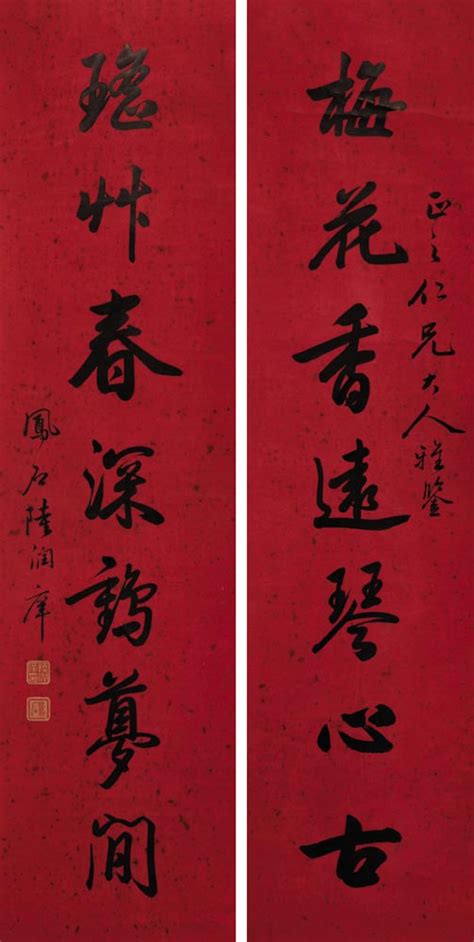 正之仁兄大人雅鑒
梅花香遠琴心古
瑤艸春深鶴夢閒
鳳石陸潤庠